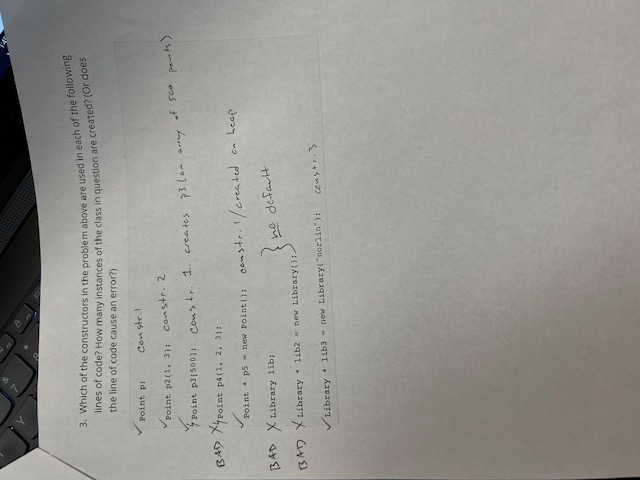 3. Which of the constructors in the problem above are used in each of the following
lines of code? How many instances of the class in question are created? (Or does
the line of code cause an error?)
✓ Point p; constr. 1
✓ Point p2(1, 3); constr. 2
✓ Point p3[500]; constr. 1. creates p3 (an array of 500 points)
BAD X Point p4(1, 2, 3);
✓ Point * p5 = new Point(); constr. 1/created on heap
BAD X Library lib;
BAD X Library * lib2 = new Library(); } no default
✓ Library * lib3 = new Library("norlin"); constr. 3